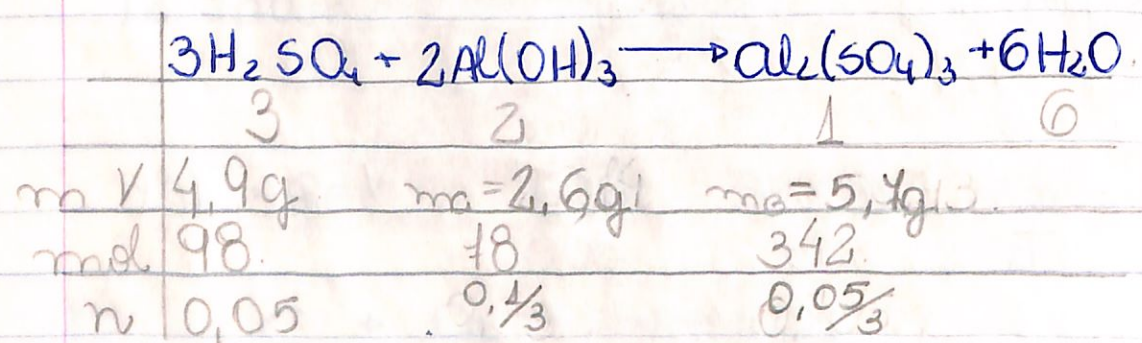 3H₂SO₄ + 2Al(OH)₃ ⟶ Al₂(SO₄)₃ + 6H₂O
3 2 1 6
m V 4,9g mₐ = 2,6g m₀ = 5,7g
mol 98 78 342
n 0,05 0,1/3 0,05/3